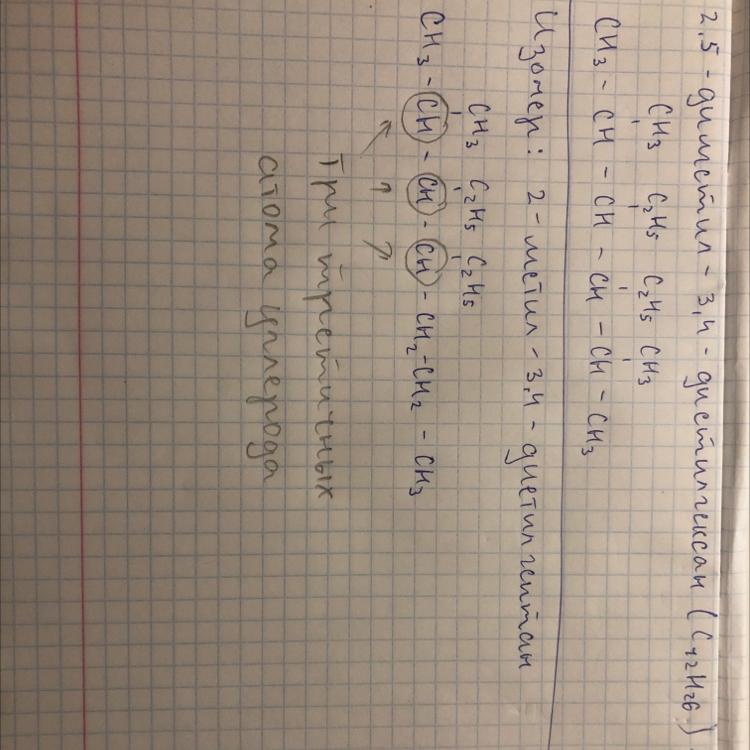 2,5-диметил-3,4-диэтилгексан (C₁₂H₂₆).
CH₃ C₂H₅ C₂H₅ CH₃
CH₃ - CH - CH - CH - CH - CH₃
Изомер: 2-метил-3,4-диетилгептан
CH₃ C₂H₅ C₂H₅
CH₃ - CH - CH - CH - CH₂ - CH₂ - CH₃
Три третичных
атома углерода